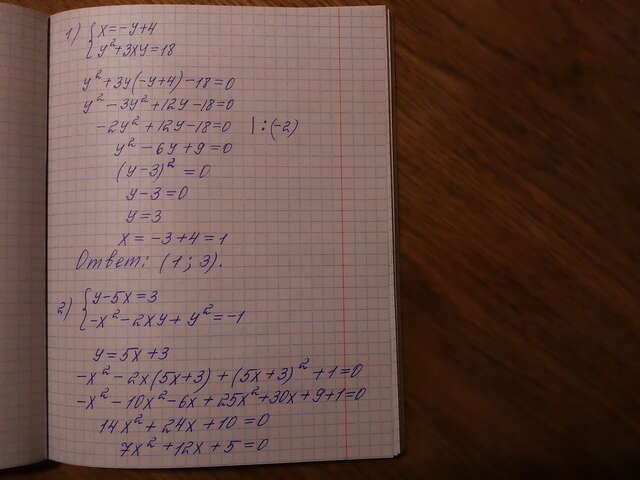 1) { x=-y+4
y²+3xy=18
y²+3y(-y+4)-18=0
y²-3y²+12y-18=0
-2y²+12y-18=0 |:(-2)
y²-6y+9=0
(y-3)²=0
y-3=0
y=3
x=-3+4=1
Ответ: (1; 3).
2) { y-5x=3
-x²-2xy+y²=-1
y=5x+3
-x²-2x(5x+3)+(5x+3)²+1=0
-x²-10x²-6x+25x²+30x+9+1=0
14x²+24x+10=0
7x²+12x+5=0